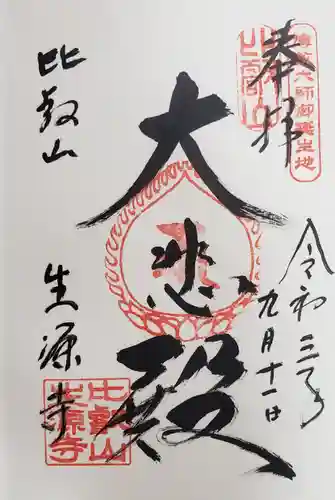 奉拝
傳教大師御誕生地
令和三年
九月十一日
大悲殿
比叡山
生源寺
比叡山
生源寺